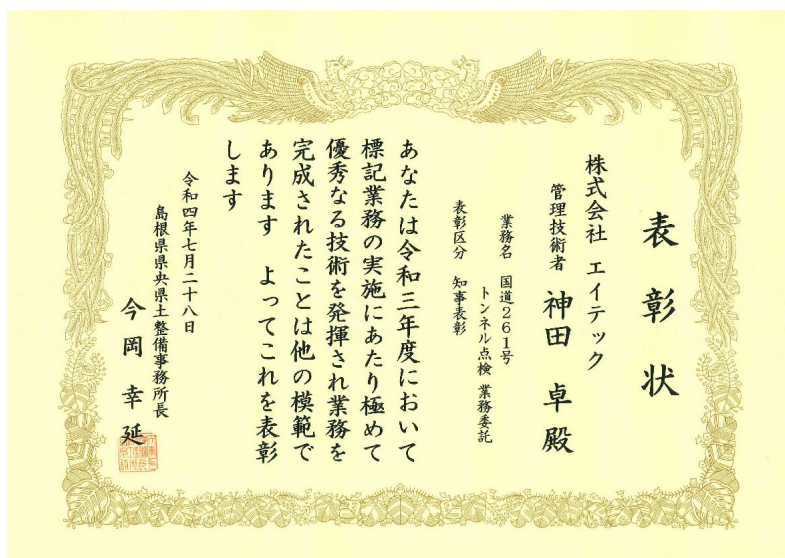 表彰状
株式会社 エイテック
管理技術者 神田 卓 殿
業務名 国道261号
トンネル点検 業務委託
表彰区分 知事表彰
あなたは令和三年度において
標記業務の実施にあたり極めて
優秀なる技術を発揮され業務を
完成されたことは他の模範で
あります よってこれを表彰
します
令和四年七月二十八日
島根県県央県土整備事務所長
今岡幸延